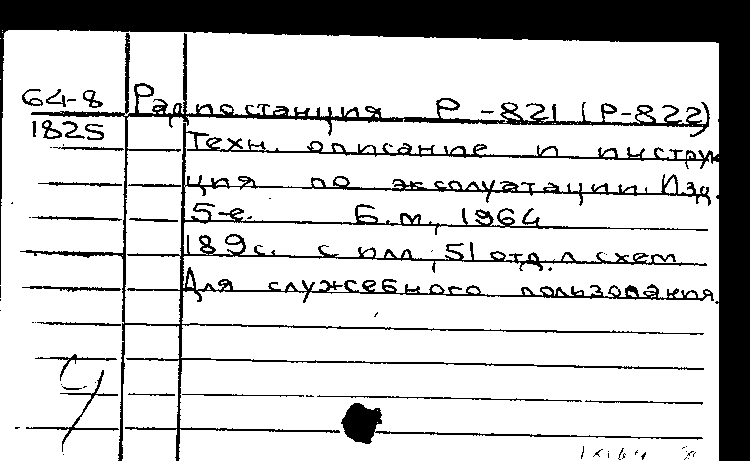 64-8 Радиостанция Р-821 (Р-822)
1825 Техн. описание и инструк
ция по эксплуатации. Изд.
5-е. Б.м., 1964
189с. с илл, 51 отд. л схем
Для служебного пользования.